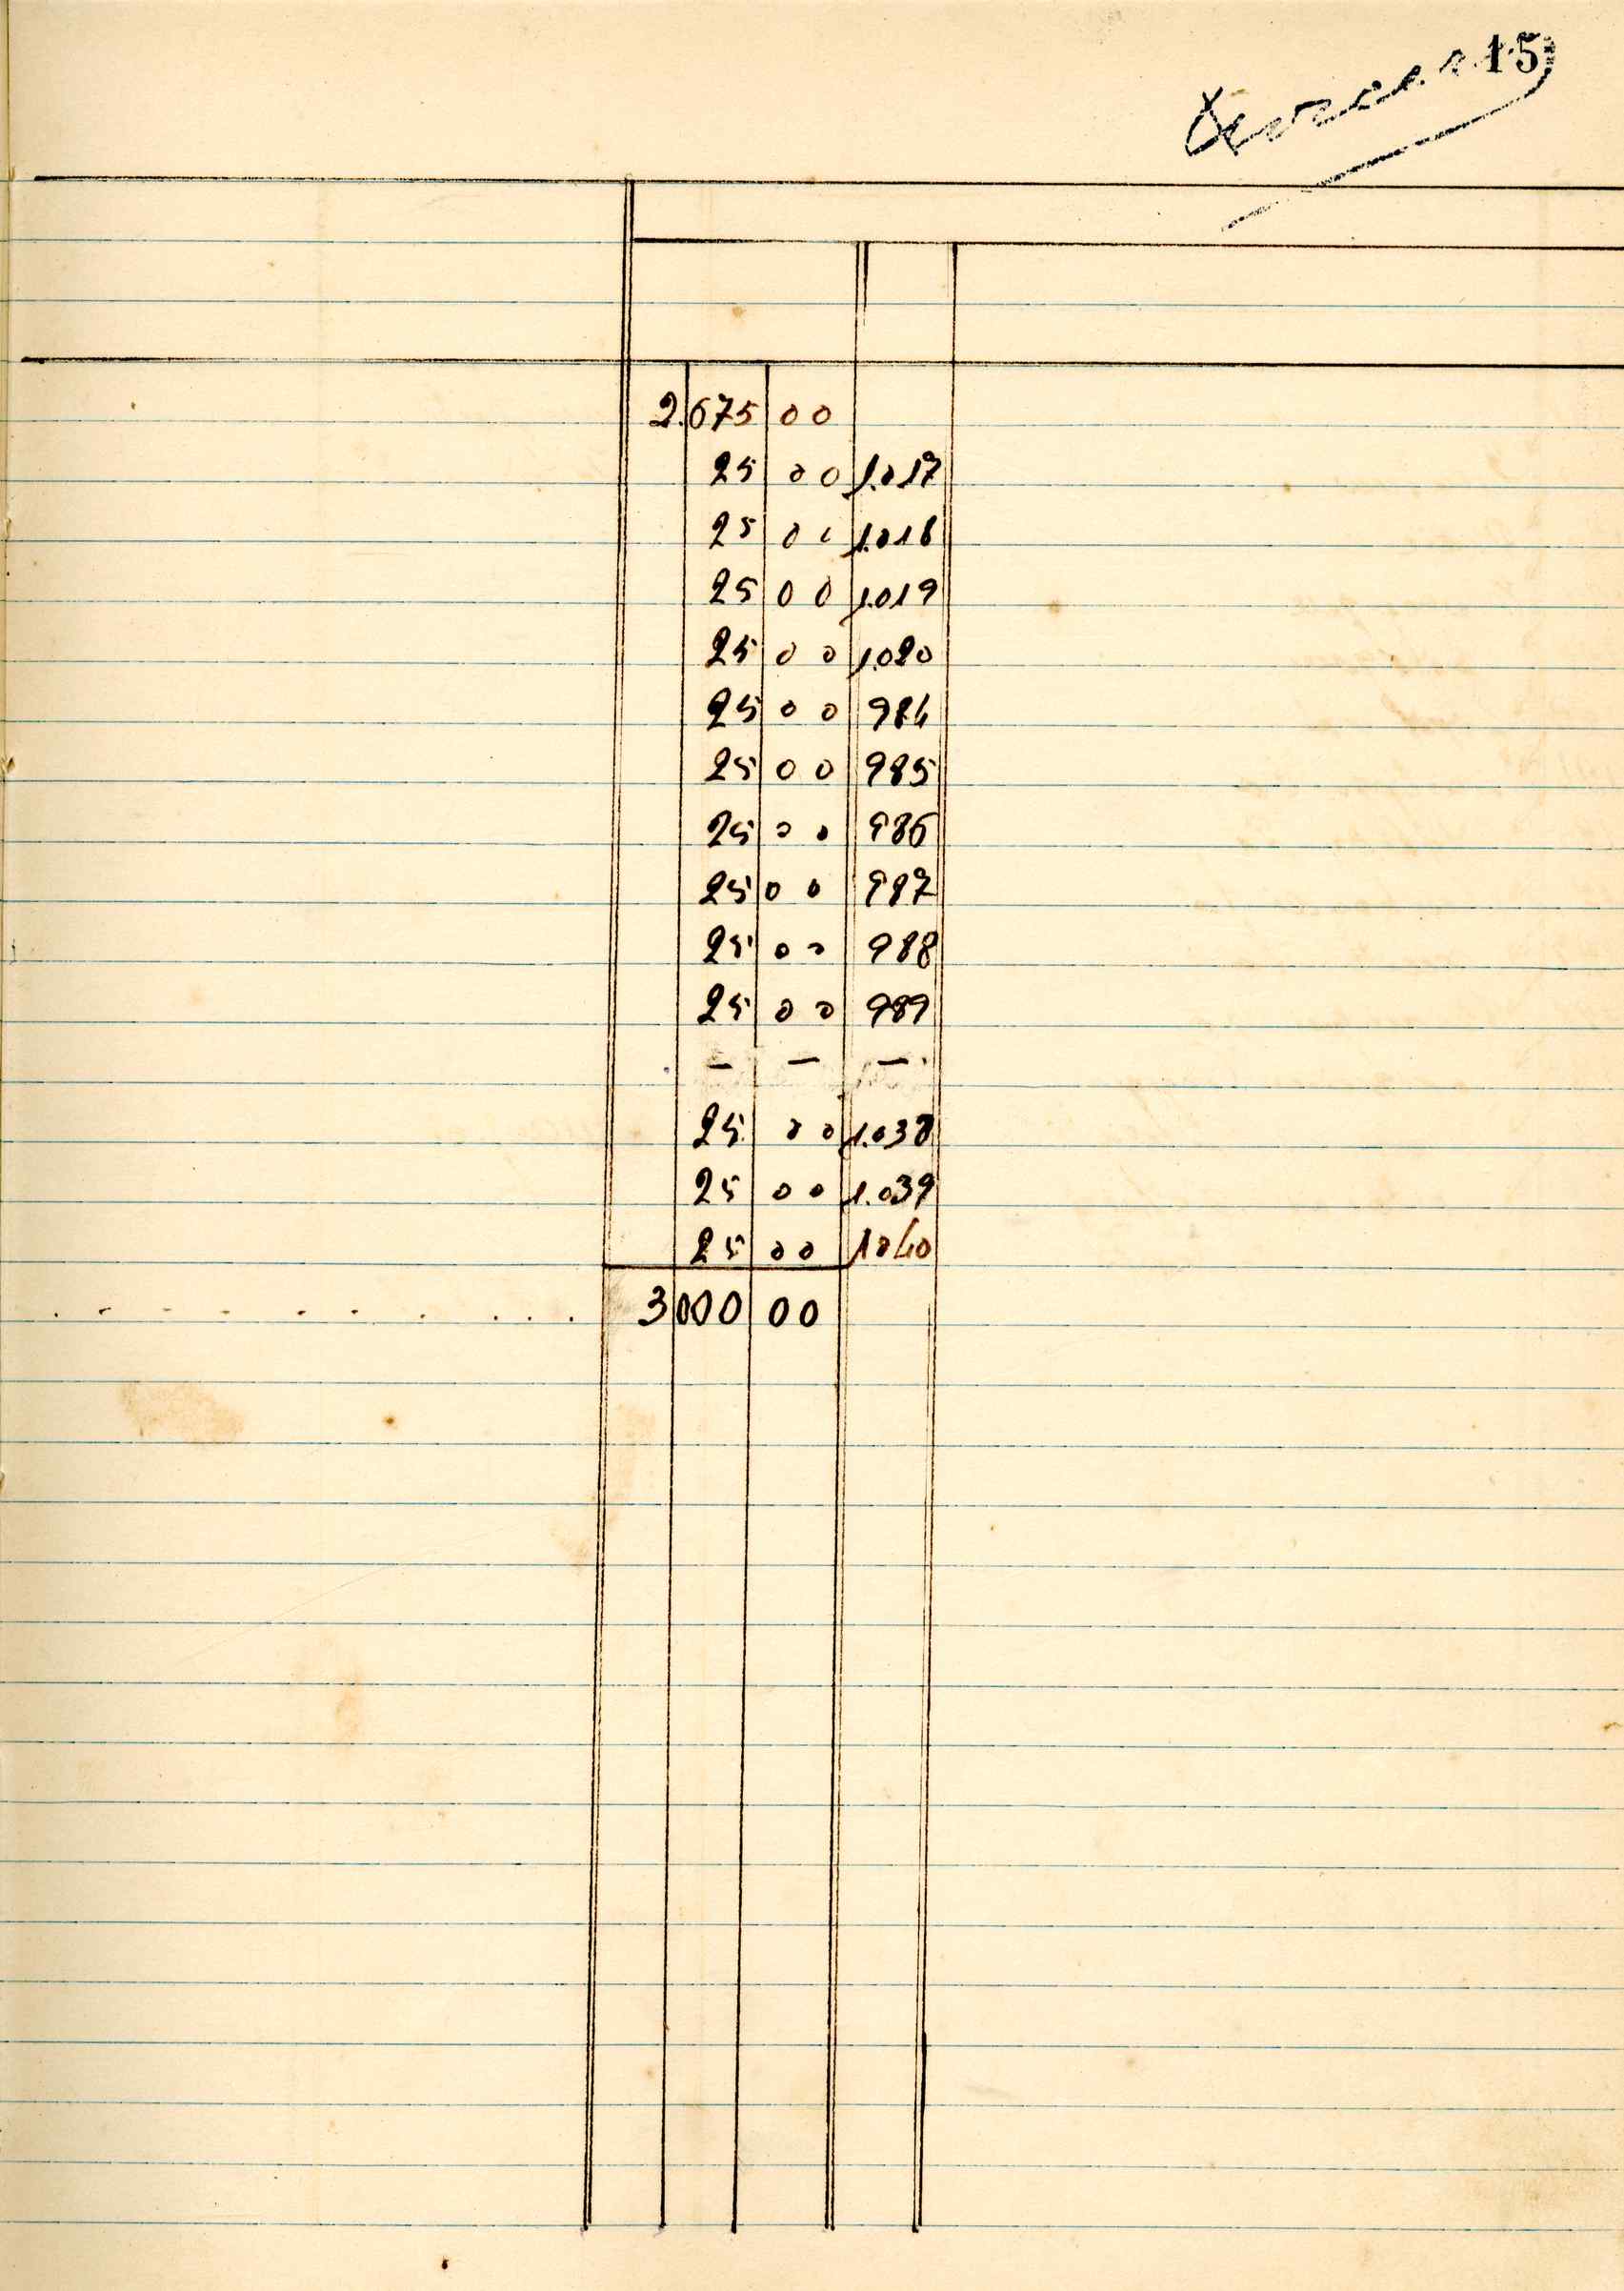 15
2.675 00
25 00 1.017
25 00 1.018
25 00 1.019
25 00 1.020
25 00 984
25 00 985
25 00 986
25 00 987
25 00 988
25 00 989
— — —
25 00 1.038
25 00 1.039
25 00 1040
. . . . . . . . . . 3000 00